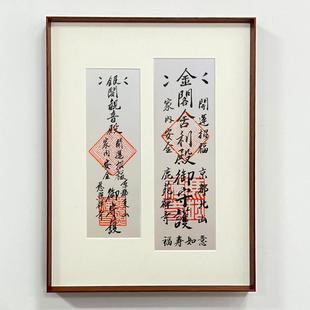 開運招福 京都北山
金閣舎利殿御守護
家内安全 鹿苑禅寺
福寿如意
開運招福 京都東山
銀閣観音殿 御守護
家内安全 慈照禅寺